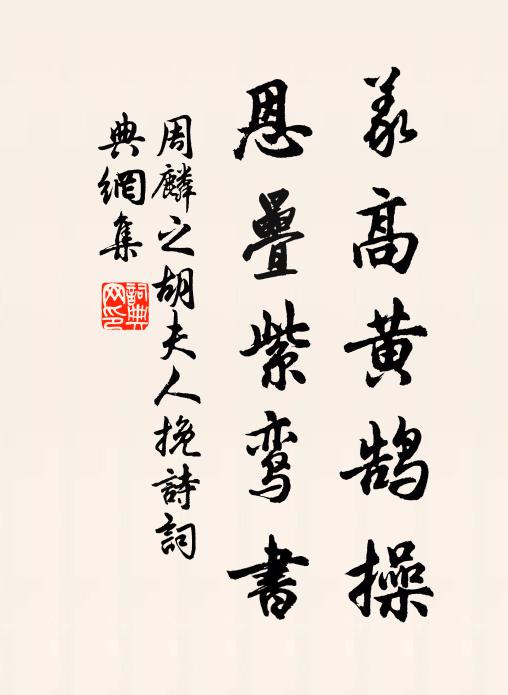 義高黄鹄操
恩疊紫鸾書
周麟之胡夫人挽詩詞
典網集
詞典网印